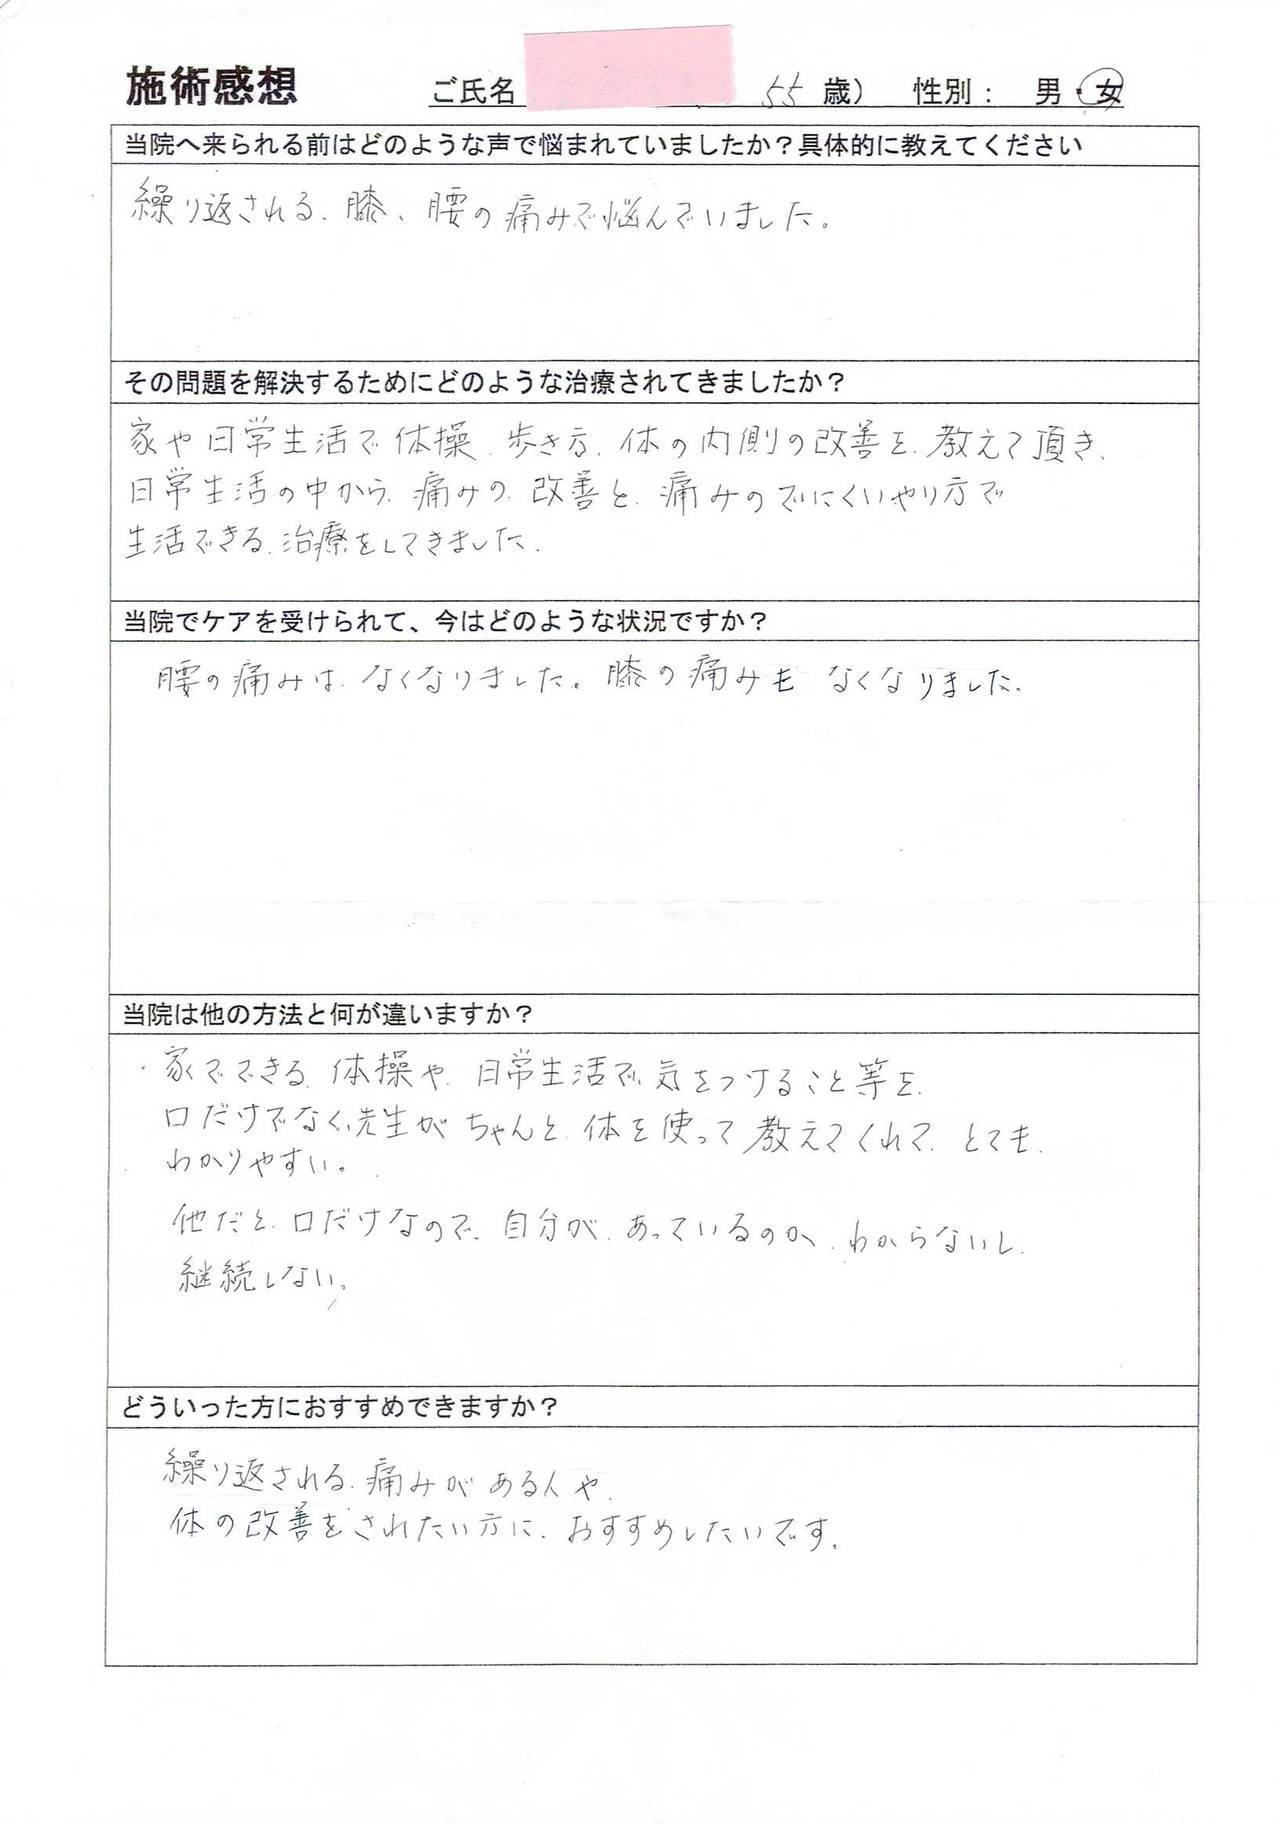 施術感想 ご氏名 55 歳） 性別： 男・女
当院へ来られる前はどのような声で悩まれていましたか？具体的に教えてください
繰り返される、膝、腰の痛みで悩んでいました。
その問題を解決するためにどのような治療されてきましたか？
家や日常生活で体操、歩き方、体の内側の改善を、教えて頂き、
日常生活の中から、痛みの、改善と、痛みのでにくいやり方で
生活できる、治療をしてきました。
当院でケアを受けられて、今はどのような状況ですか？
腰の痛みは、なくなりました。膝の痛みも なくなりました。
当院は他の方法と何が違いますか？
・家でできる、体操や、日常生活で、気をつけること等を、
口だけでなく、先生が ちゃんと、体を使って 教えてくれて、とても、
わかりやすい。
他だと、口だけなので、自分が、あっているのか、わからないし、
継続しない。
どういった方におすすめできますか？
繰り返される、痛みが ある人や、
体の改善をされたい方に、おすすめしたいです。